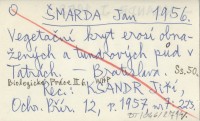 ŠMARDA Jan 1956.
Vegetační kryt erosi obna-
žených a tundrových půd v
Tatrách. Bratislava. Ss. 50,
Biologické Práce II. 6.
Rec.: KSANDR Jiří,
Ochr. Přír. 12, p. 1957, nr. 7: 223.